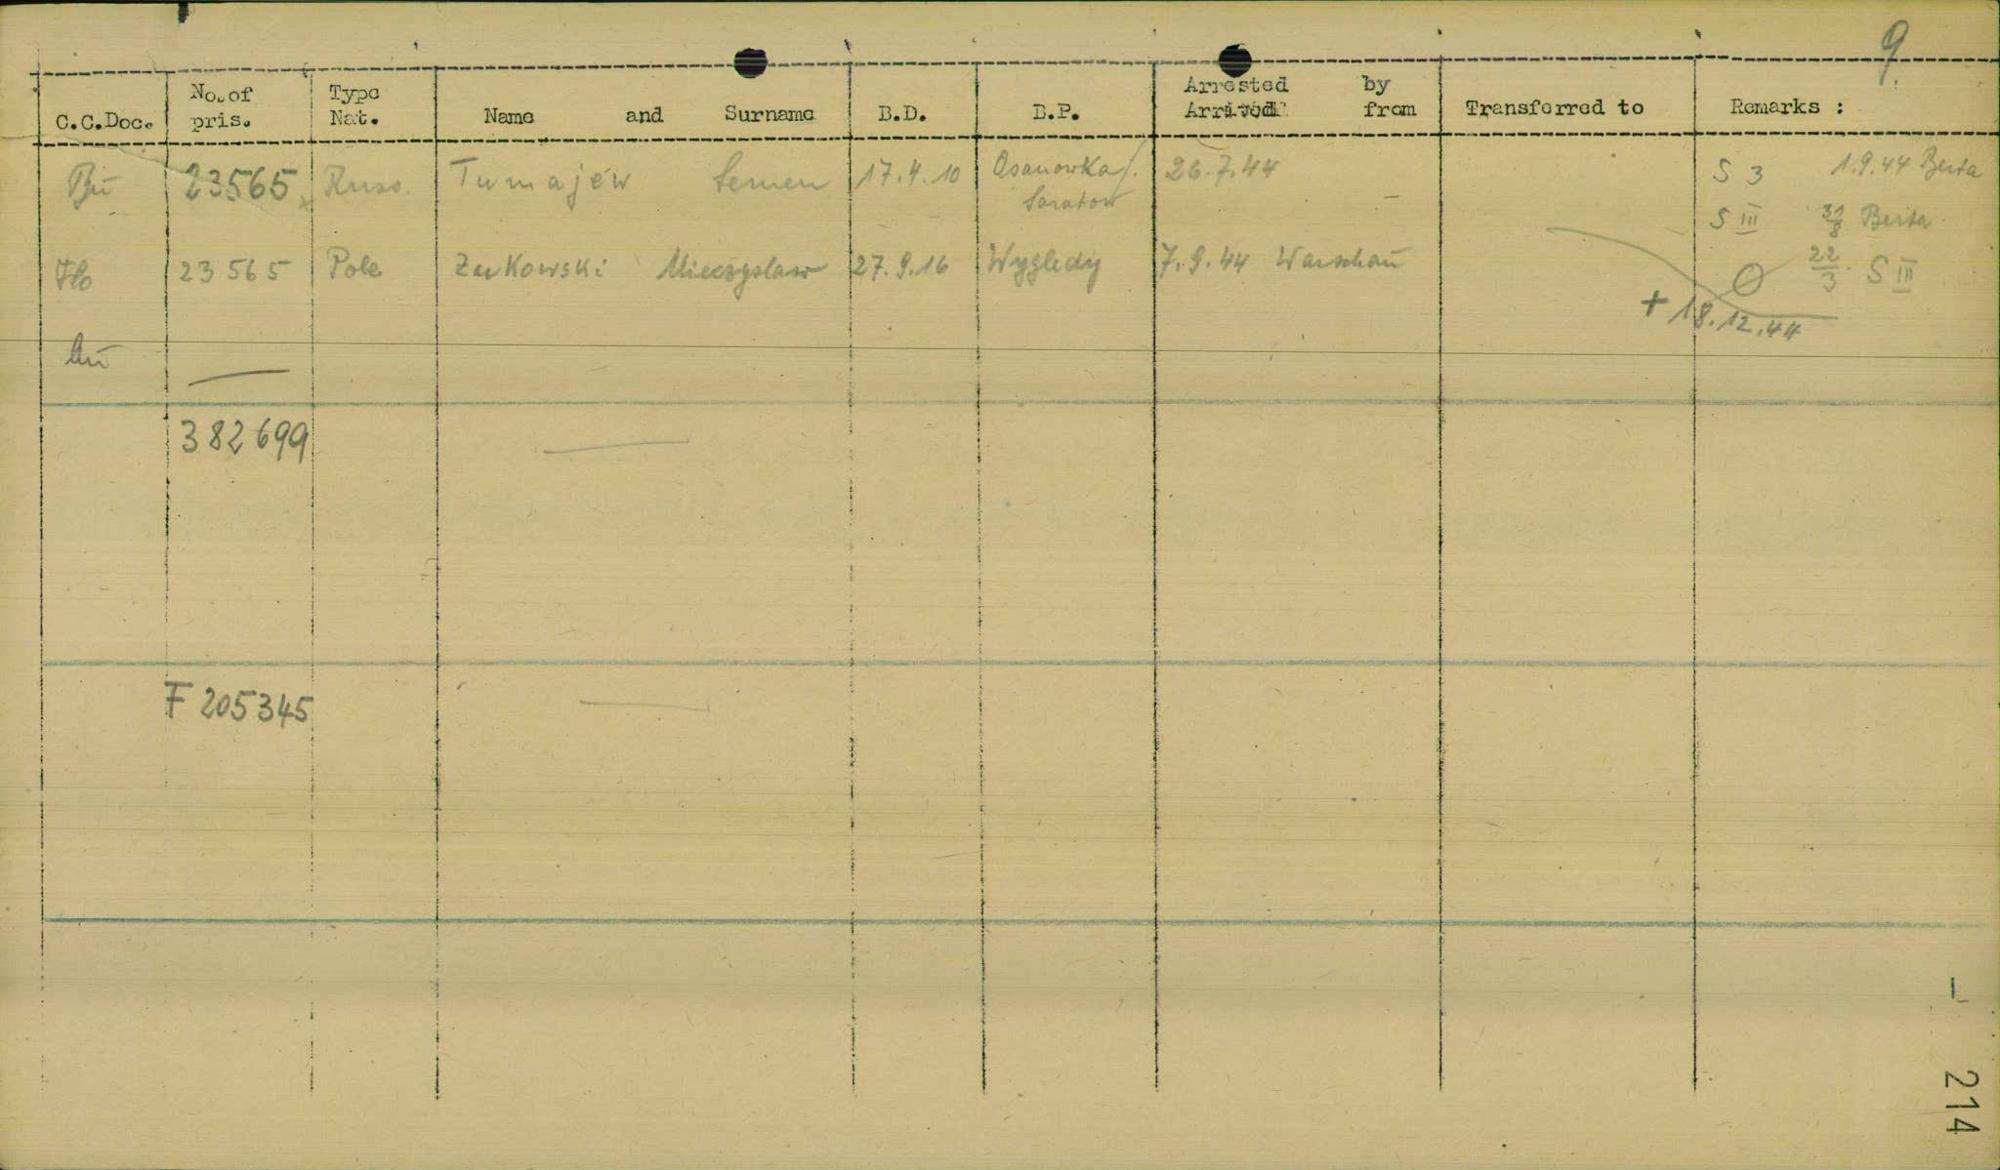 9.
C.C.Doc. No. of pris. Type Nat. Name and Surname B.D. B.P. Arrested by Arrived from Transferred to Remarks :
Bu 23565 Russ. Tumajew Semen 17.4.10 Osanowka/ Saratow 26.7.44 – S 3 1.9.44 Berta
S III 31/8 Berta
Flo 23565 Pole Zukowski Mieczyslaw 27.9.16 Wygledy 7.9.44 Warschau 22/3 S III
+ 18.12.44
Au —
382699 —
F 205345 —
– 214